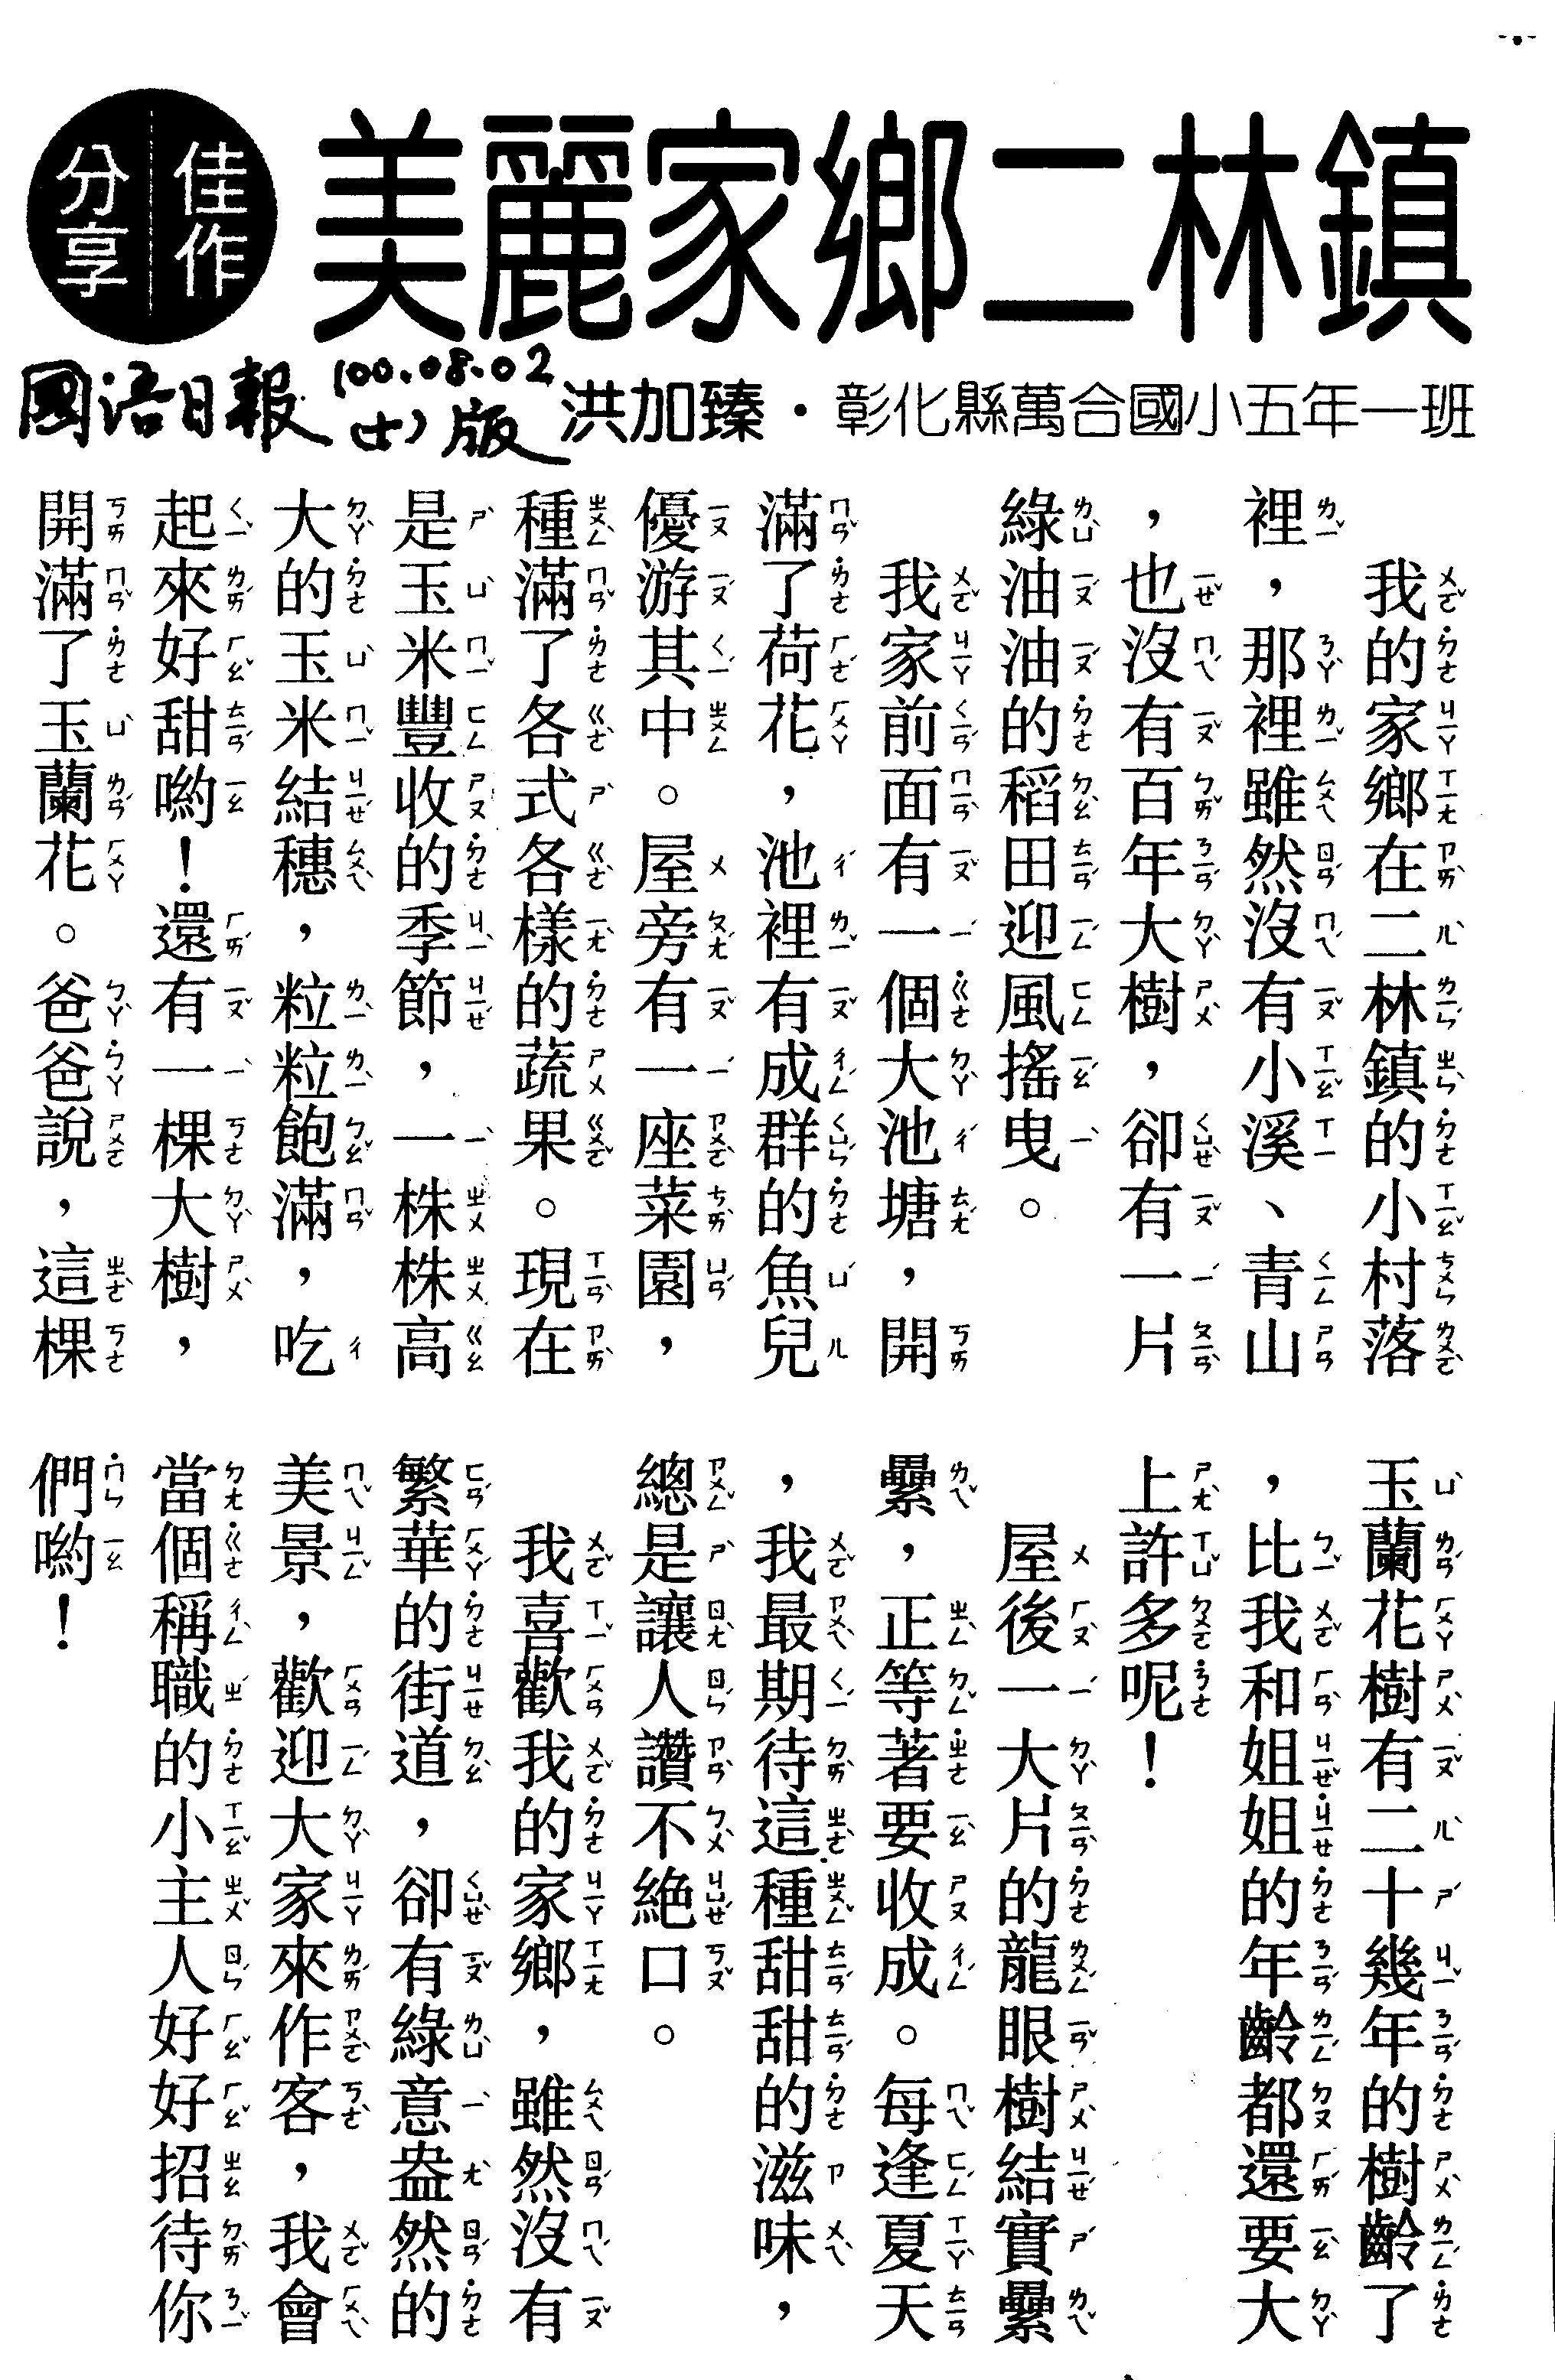 佳作
分享
美麗家鄉二林鎮
國語日報 100.08.02
出版
洪加臻・彰化縣萬合國小五年一班
我的家鄉在二林鎮的小村落
裡，那裡雖然沒有小溪、青山
，也沒有百年大樹，卻有一片
綠油油的稻田迎風搖曳。
我家前面有一個大池塘，開
滿了荷花，池裡有成群的魚兒
優游其中。屋旁有一座菜園，
種滿了各式各樣的蔬果。現在
是玉米豐收的季節，一株株高
大的玉米結穗，粒粒飽滿，吃
起來好甜喲！還有一棵大樹，
開滿了玉蘭花。爸爸說，這棵
玉蘭花樹有二十幾年的樹齡了
，比我和姐姐的年齡都還要大
上許多呢！
屋後一大片的龍眼樹結實纍
纍，正等著要收成。每逢夏天
，我最期待這種甜甜的滋味，
總是讓人讚不絕口。
我喜歡我的家鄉，雖然沒有
繁華的街道，卻有綠意盎然的
美景，歡迎大家來作客，我會
當個稱職的小主人好好招待你
們喲！